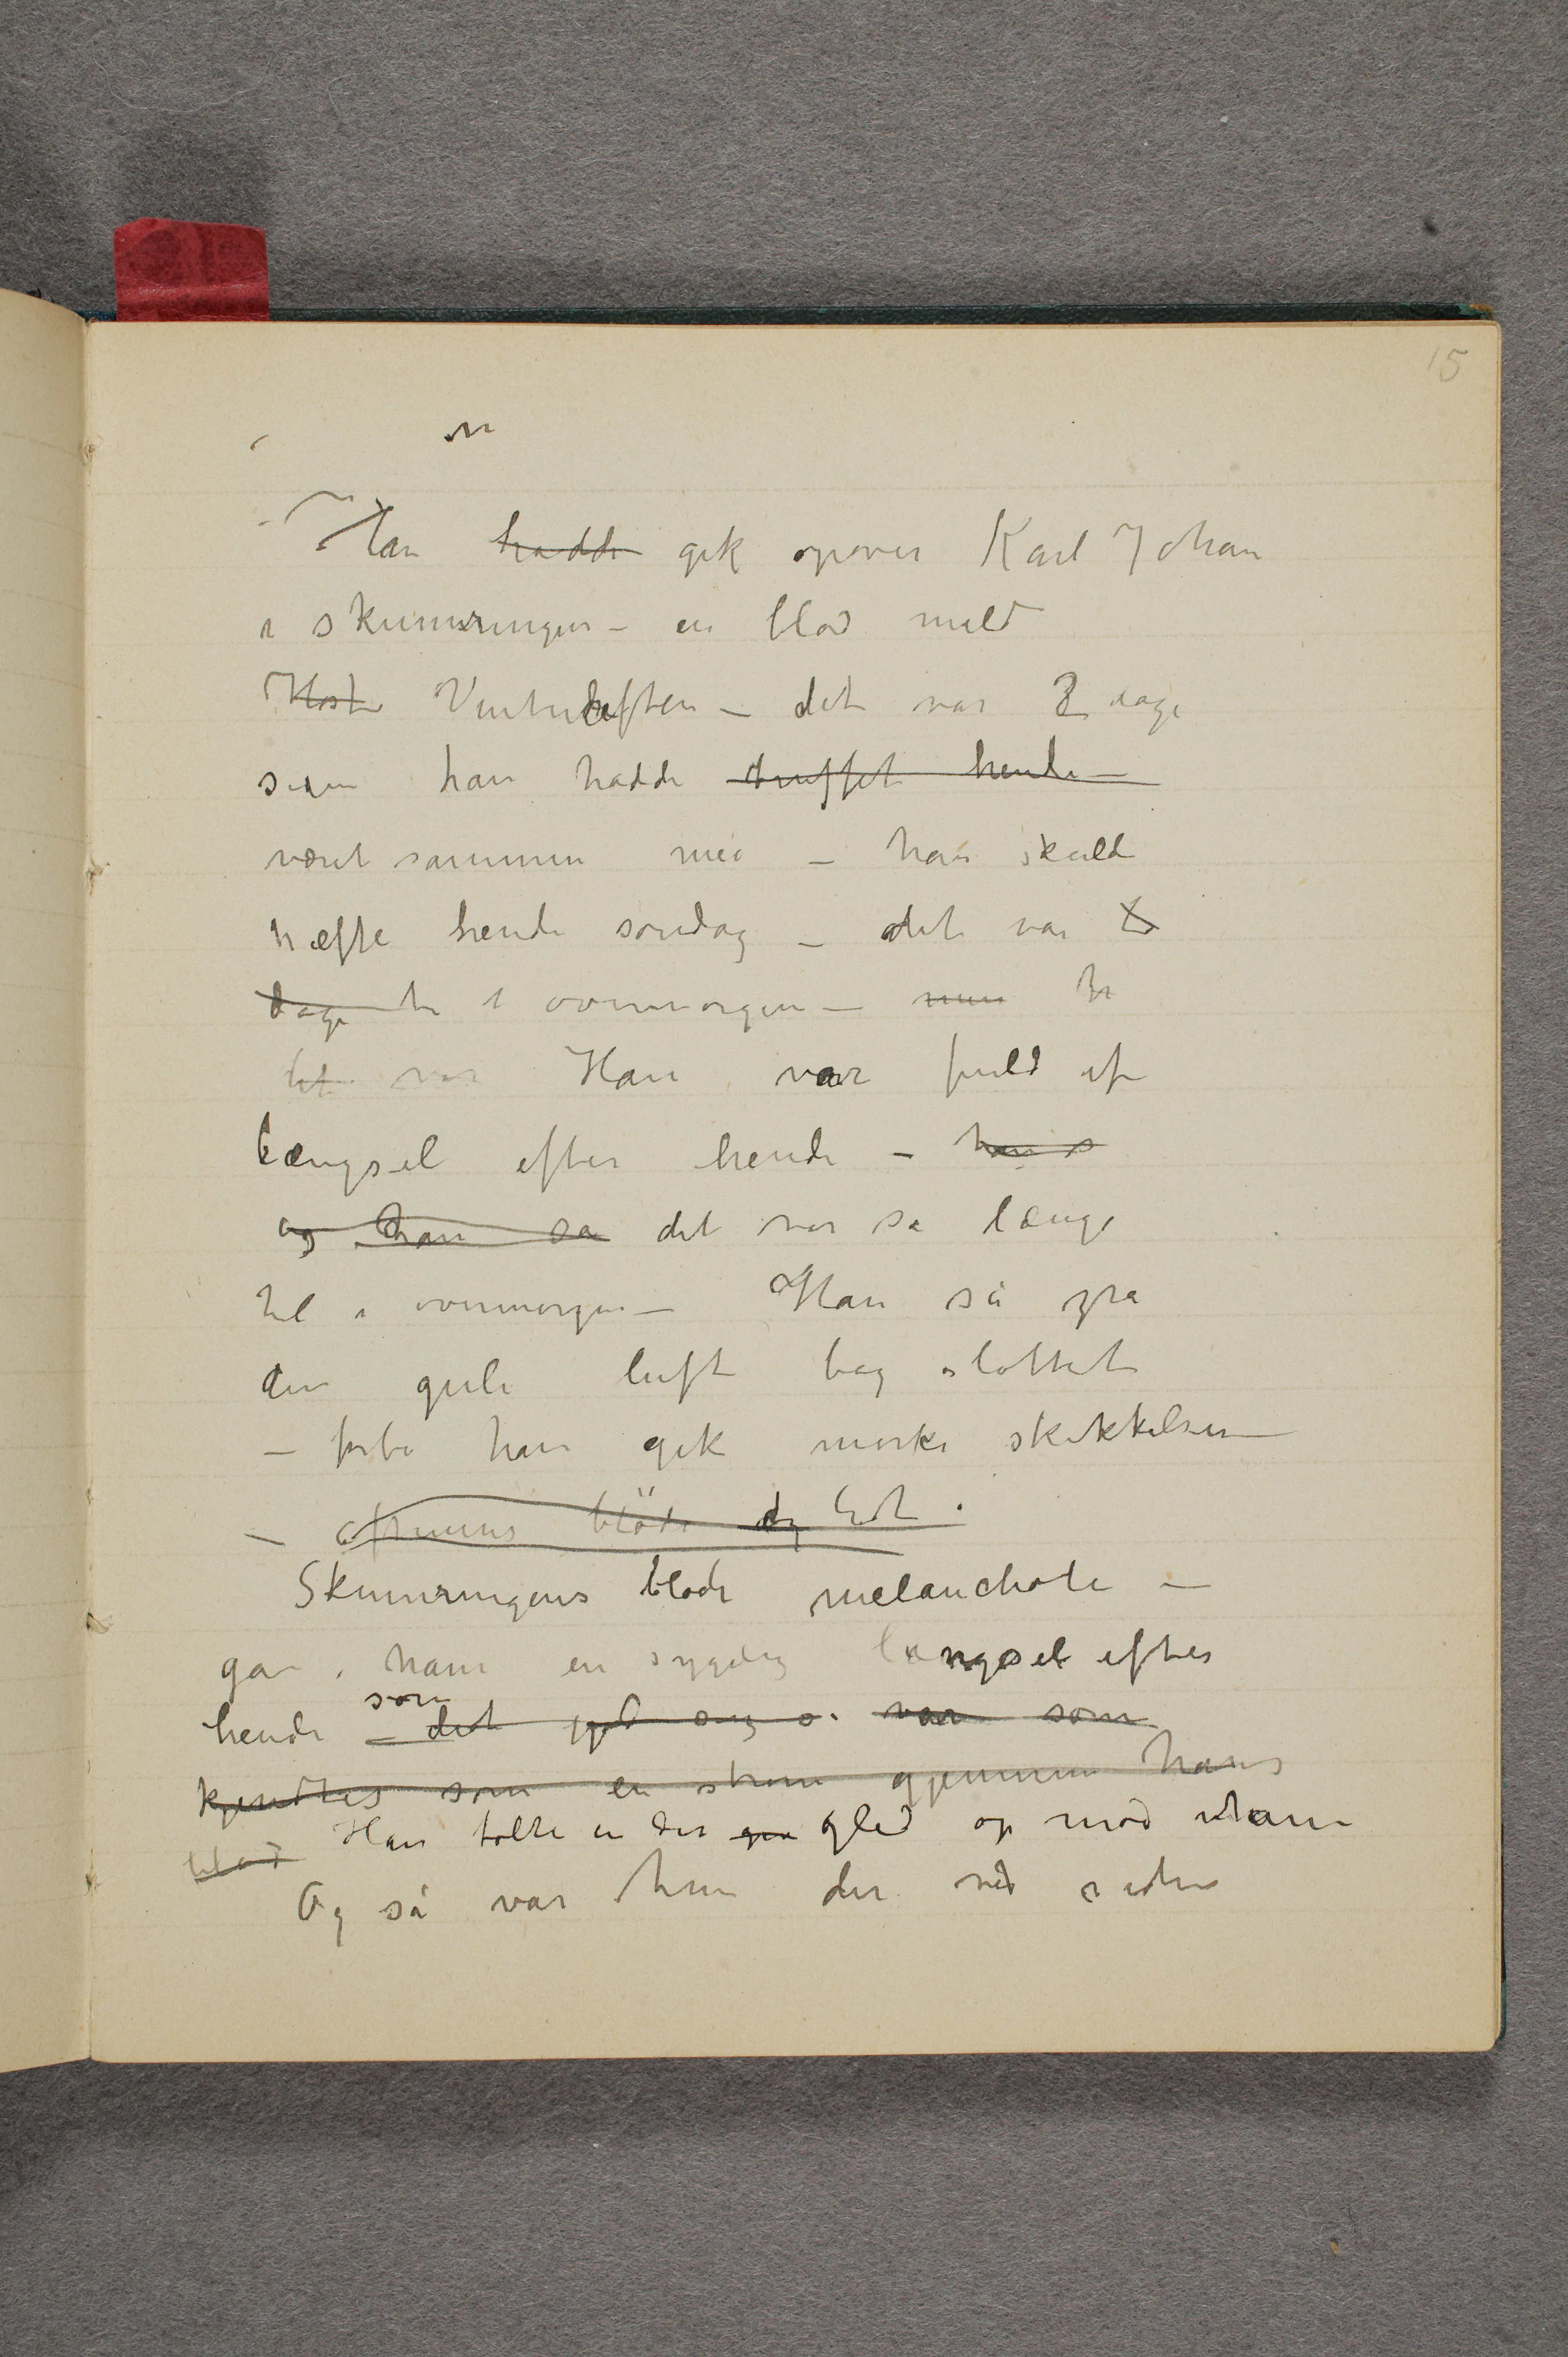 15
Han hadde gik opover Karl Johan
i skumringen – en blød mild
Høst Vinteraften – det var 3 dage
siden han hadde truffet hende –
været sammen med – han skuld
træffe hende søndag – det var to
dage til i overmorgen – men
det var Han var fuld af
længsel efter hende – han s
og han så det var så længe
til i overmorgen – Han så på
den gule luft bag slottet
– forbi ham gik mørke skikkelser –
– aftenens bløde
Skumringens bløde melancholi –
ga ham en sygelig længsel efter
hende – som det var som
kjendtes som en strøm gjennem hans
blod Han følte en der gik gled op mod ham
Og så var hun der ved siden